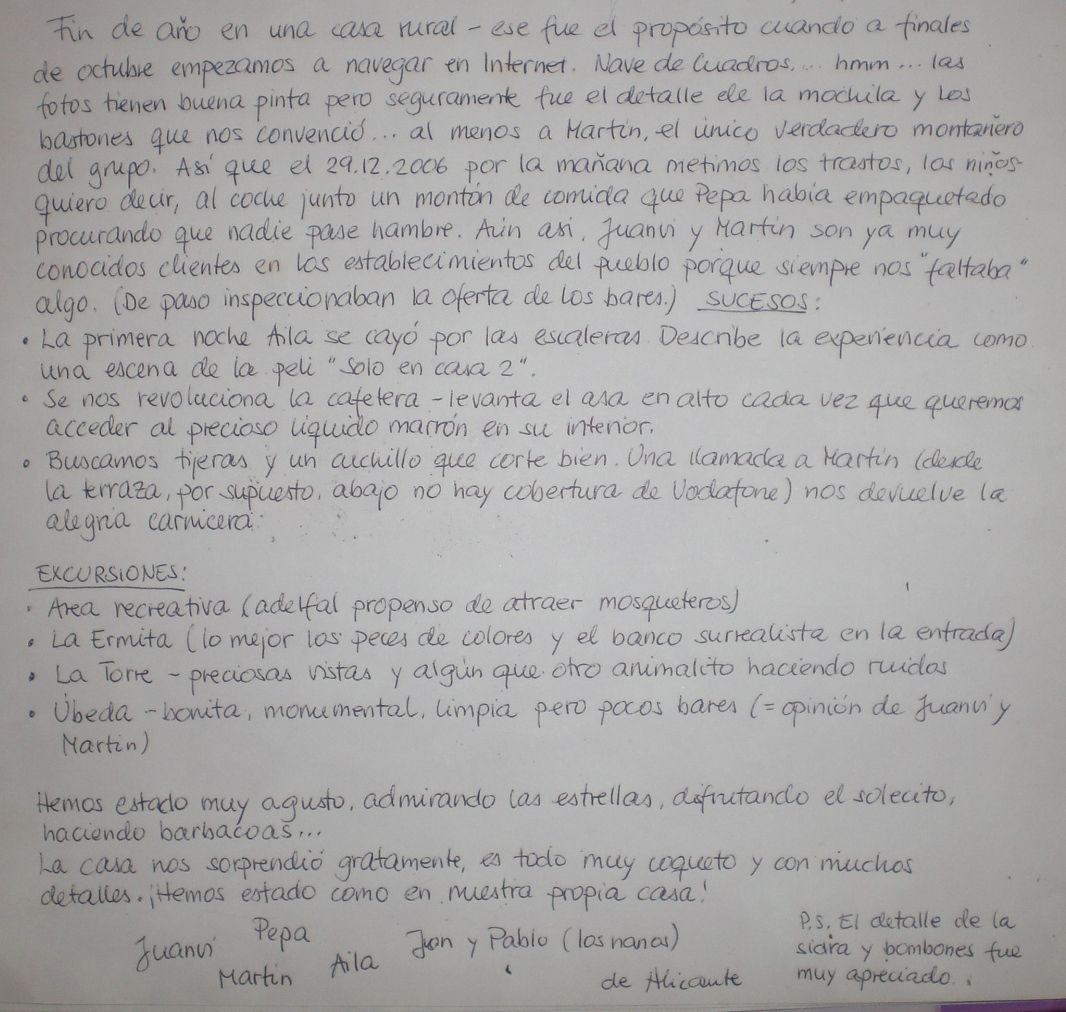 Fin de año en una casa rural - ese fue el propósito cuando a finales
de octubre empezamos a navegar en Internet. Nave de Cuadros.... hmm ... las
fotos tienen buena pinta pero seguramente fue el detalle de la mochila y los
bastones que nos convenció... al menos a Martin, el único verdadero montañero
del grupo. Así que el 29.12.2006 por la mañana metimos los trastos, los niños
quiero decir, al coche junto un montón de comida que Pepa había empaquetado
procurando que nadie pase hambre. Aún asi, Juanvi y Martin son ya muy
conocidos clientes en los establecimientos del pueblo porque siempre nos "faltaba"
algo. (De paso inspeccionaban la oferta de los bares.) SUCESOS:
• La primera noche Aila se cayó por las escaleras. Describe la experiencia como
una escena de la peli "Solo en casa 2".
• Se nos revoluciona la cafetera - levanta el asa en alto cada vez que queremos
acceder al precioso liquido marrón en su interior.
• Buscamos tijeras y un cuchillo que corte bien. Una llamada a Martin (desde
la terraza, por supuesto, abajo no hay cobertura de Vodafone) nos devuelve la
alegria carnicera.
EXCURSIONES:
• Area recreativa (adelfal propenso de atraer mosqueteros)
• La Ermita (lo mejor los peces de colores y el banco surrealista en la entrada)
• La Torre - preciosas vistas y algún que otro animalito haciendo ruidos
• Úbeda - bonita, monumental, limpia pero pocos bares (= opinión de Juanvi y
Martin)
Hemos estado muy agusto, admirando las estrellas, disfrutando el solecito,
haciendo barbacoas...
La casa nos sorprendió gratamente, es todo muy coqueto y con muchos
detalles. ¡Hemos estado como en nuestra propia casa!
Juanvi Pepa Martin Aila Jon y Pablo (los nanos)
de Alicante
P.S. El detalle de la
sidra y bombones fue
muy apreciado.